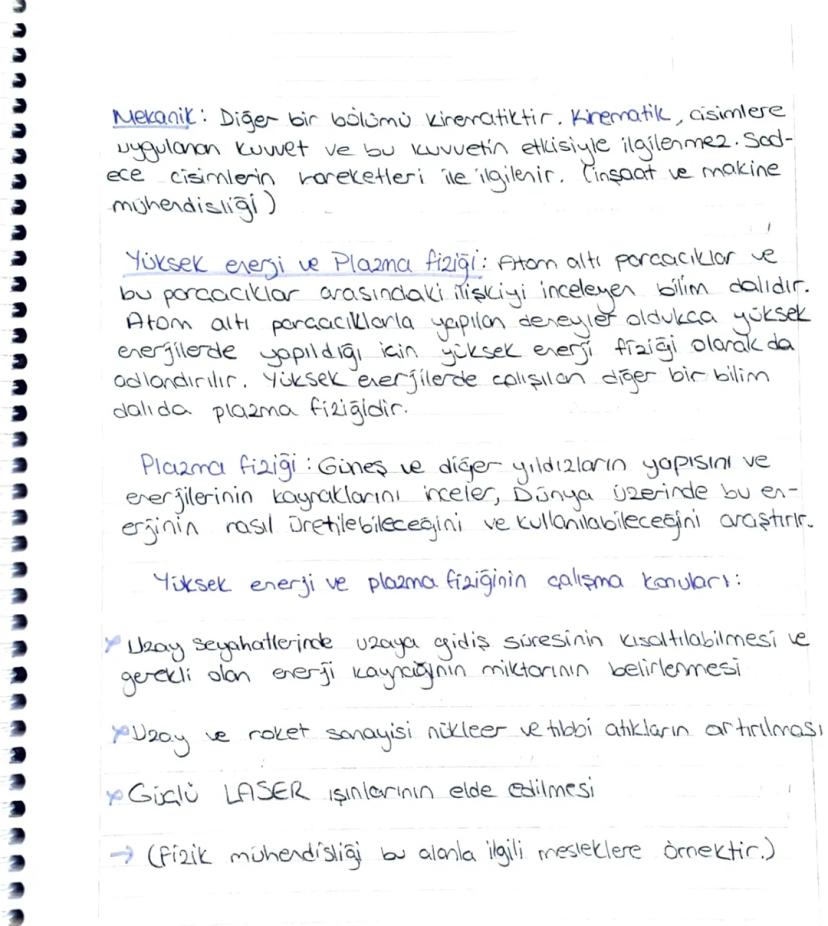 Mekanik: Diğer bir bölümü kinematiktir. Kinematik, cisimlere
uygulanan kuvvet ve bu kuvvetin etkisiyle ilgilenmez. Sad-
ece cisimlerin hareketleri ile ilgilenir. (inşaat ve makine
mühendisliği)
Yüksek enerji ve Plazma fiziği: Atom altı parçacıklar ve
bu parçacıklar arasındaki ilişkiyi inceleyen bilim dalıdır.
Atom altı parçacıklarla yapılan deneyler oldukça yüksek
enerjilerde yapıldığı için yüksek enerji fiziği olarak da
adlandırılır. Yüksek enerjilerde çalışılan diğer bir bilim
dalı da plazma fiziğidir.
Plazma fiziği: Güneş ve diğer yıldızların yapısını ve
enerjilerinin kaynaklarını inceler, Dünya üzerinde bu en-
erjinin nasıl üretilebileceğini ve kullanılabileceğini araştırır.
Yüksek enerji ve plazma fiziğinin çalışma konuları:
Uzay seyahatlerinde uzaya gidiş süresinin kısaltılabilmesi ve
gerekli olan enerji kaynağının miktarının belirlenmesi
Uzay ve roket sanayisi nükleer ve tıbbi atıkların artırılması
Güçlü LASER ışınlarının elde edilmesi
→ (Fizik mühendisliği bu alanla ilgili mesleklere örnektir.)